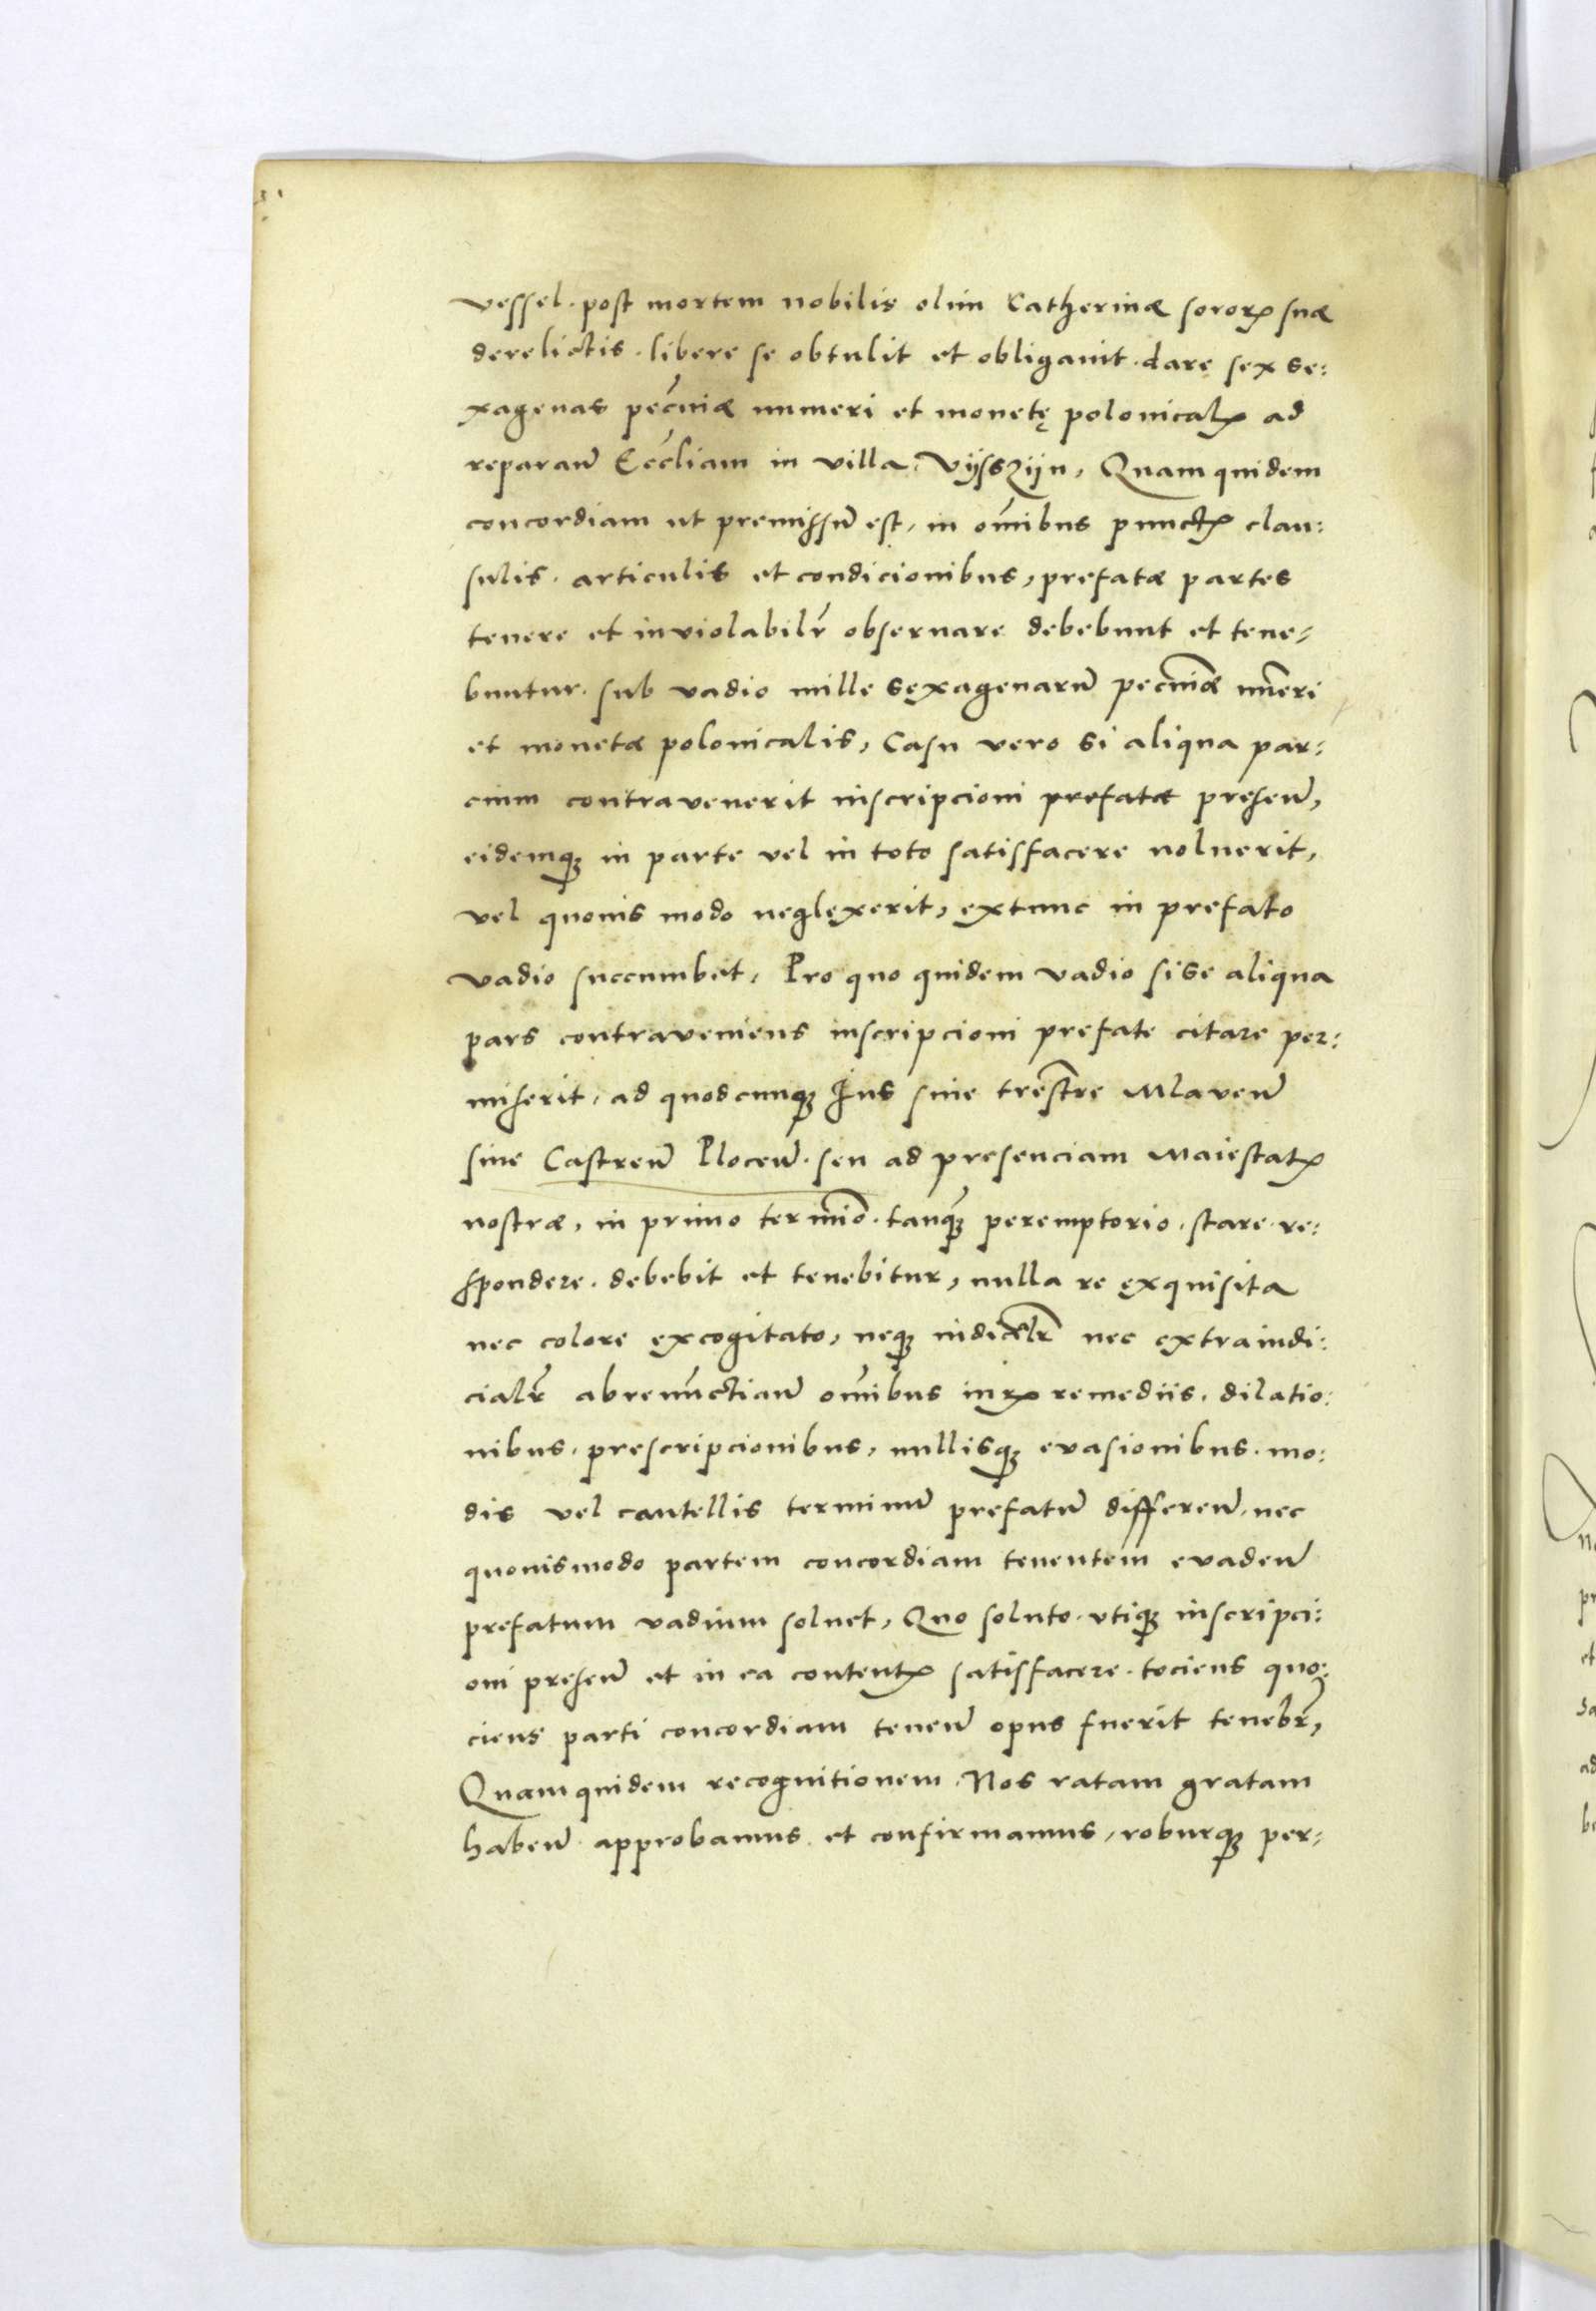 Vessel · post mortem nobilis olim Catherinæ sororꝭ suæ
derelictis · libere se obtulit et obligauit · dare sex se:
xagenas pecũiæ numeri et monetę polonicalꝭ ad
reparanđ Eccłiam in villa Vÿsszÿn, Quamquidem
concordiam ut premissũ est, in om̃ibus punctꝭ clau:
sulis · articulis et condicionibus, prefatæ partes
tenere et inviolabilr̃ obseruare debebunt et tene-
buntur · sub vadio mille sęxagenarũ pecũiæ nũeri
et monetæ polonicalis, Casu vero si aliqua par:
cium contravenerit inscripcioni prefatæ preseñ,
eidemqꝫ in parte vel in toto satisfacere noluerit,
vel quouis modo neglęxerit, extunc in prefato
vadio succumbet, Pro quo quidem vadio si se aliqua
pars contraveniens inscripcioni prefate citare per:
miserit, ad quodcunqꝫ Ius siue trẽstre Mlaveñ
siue Castreñ Ploceñ · seu ad presenciam Maiestatꝭ
nostræ, in primo termĩo · tanqꝫ̃ peremptorio · stare · re:
spondere · debebit et tenebitur, nulla re exquisita
nec colore excogitato, neqꝫ iudicialr̃ nec extraiudi:
cialr̃ abrenũctianđ om̃ibus iurꝭ remediis · dilatio:
nibus · prescripcionibus, nullisqꝫ evasionibus · mo:
dis vel cautellis terminũ prefatũ differenđ · nec
quouismodo partem concordiam tenentem evadenđ
prefatum vadium soluet, Quo soluto · vtiqꝫ inscripci:
oni preseñ et in ea contentꝭ satisfacere · tociens quo:
ciens parti concordiam teneñ opus fuerit tenebr̃,
Quamquidem recognitionem · Nos ratam gratam
habeñ approbamus et confirmamus, roburqꝫ per-